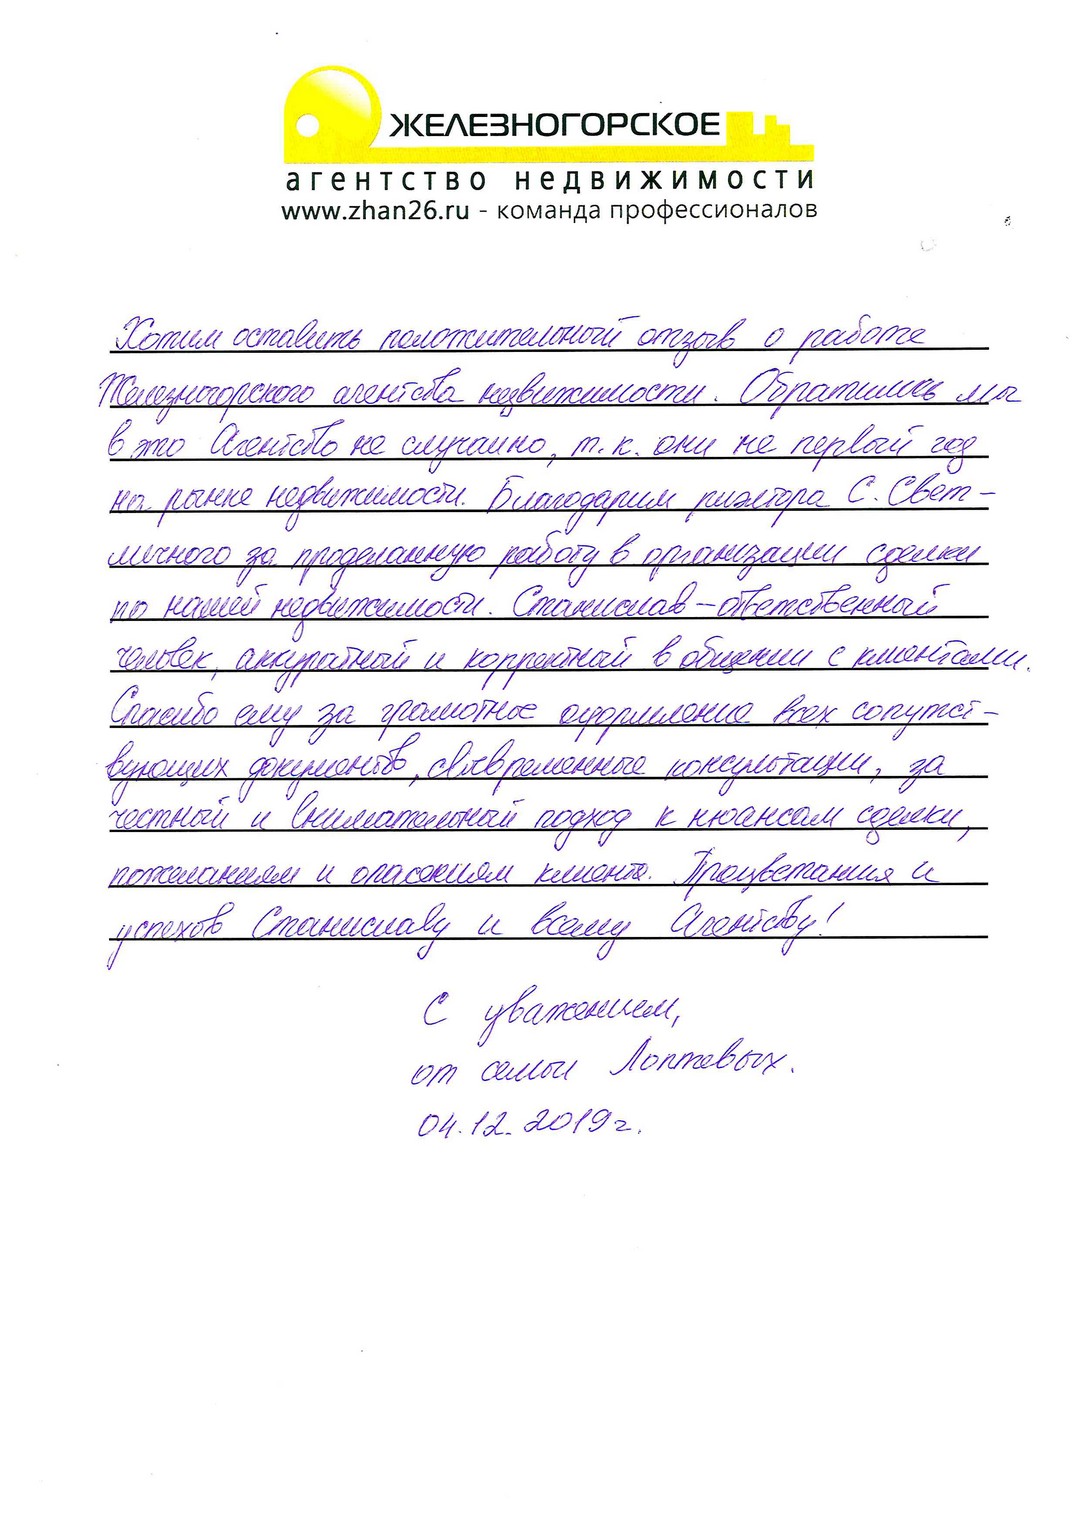 ЖЕЛЕЗНОГОРСКОЕ
агентство недвижимости
www.zhan26.ru - команда профессионалов
Хотим оставить положительный отзыв о работе
Железногорского агентства недвижимости. Обратились мы
в это Агентство не случайно, т.к. они не первый год
на рынке недвижимости. Благодарим риэлтора С. Свет-
личного за проделанную работу в организации сделки
по нашей недвижимости. Станислав - ответственный
человек, аккуратный и корректный в общении с клиентами.
Спасибо ему за грамотное оформление всех сопутст-
вующих документов, своевременные консультации, за
честный и внимательный подход к нюансам сделки,
пожеланиям и опасениям клиента. Процветания и
успехов Станиславу и всему Агентству!
С уважением,
от семьи Лоптевых.
04.12.2019г.